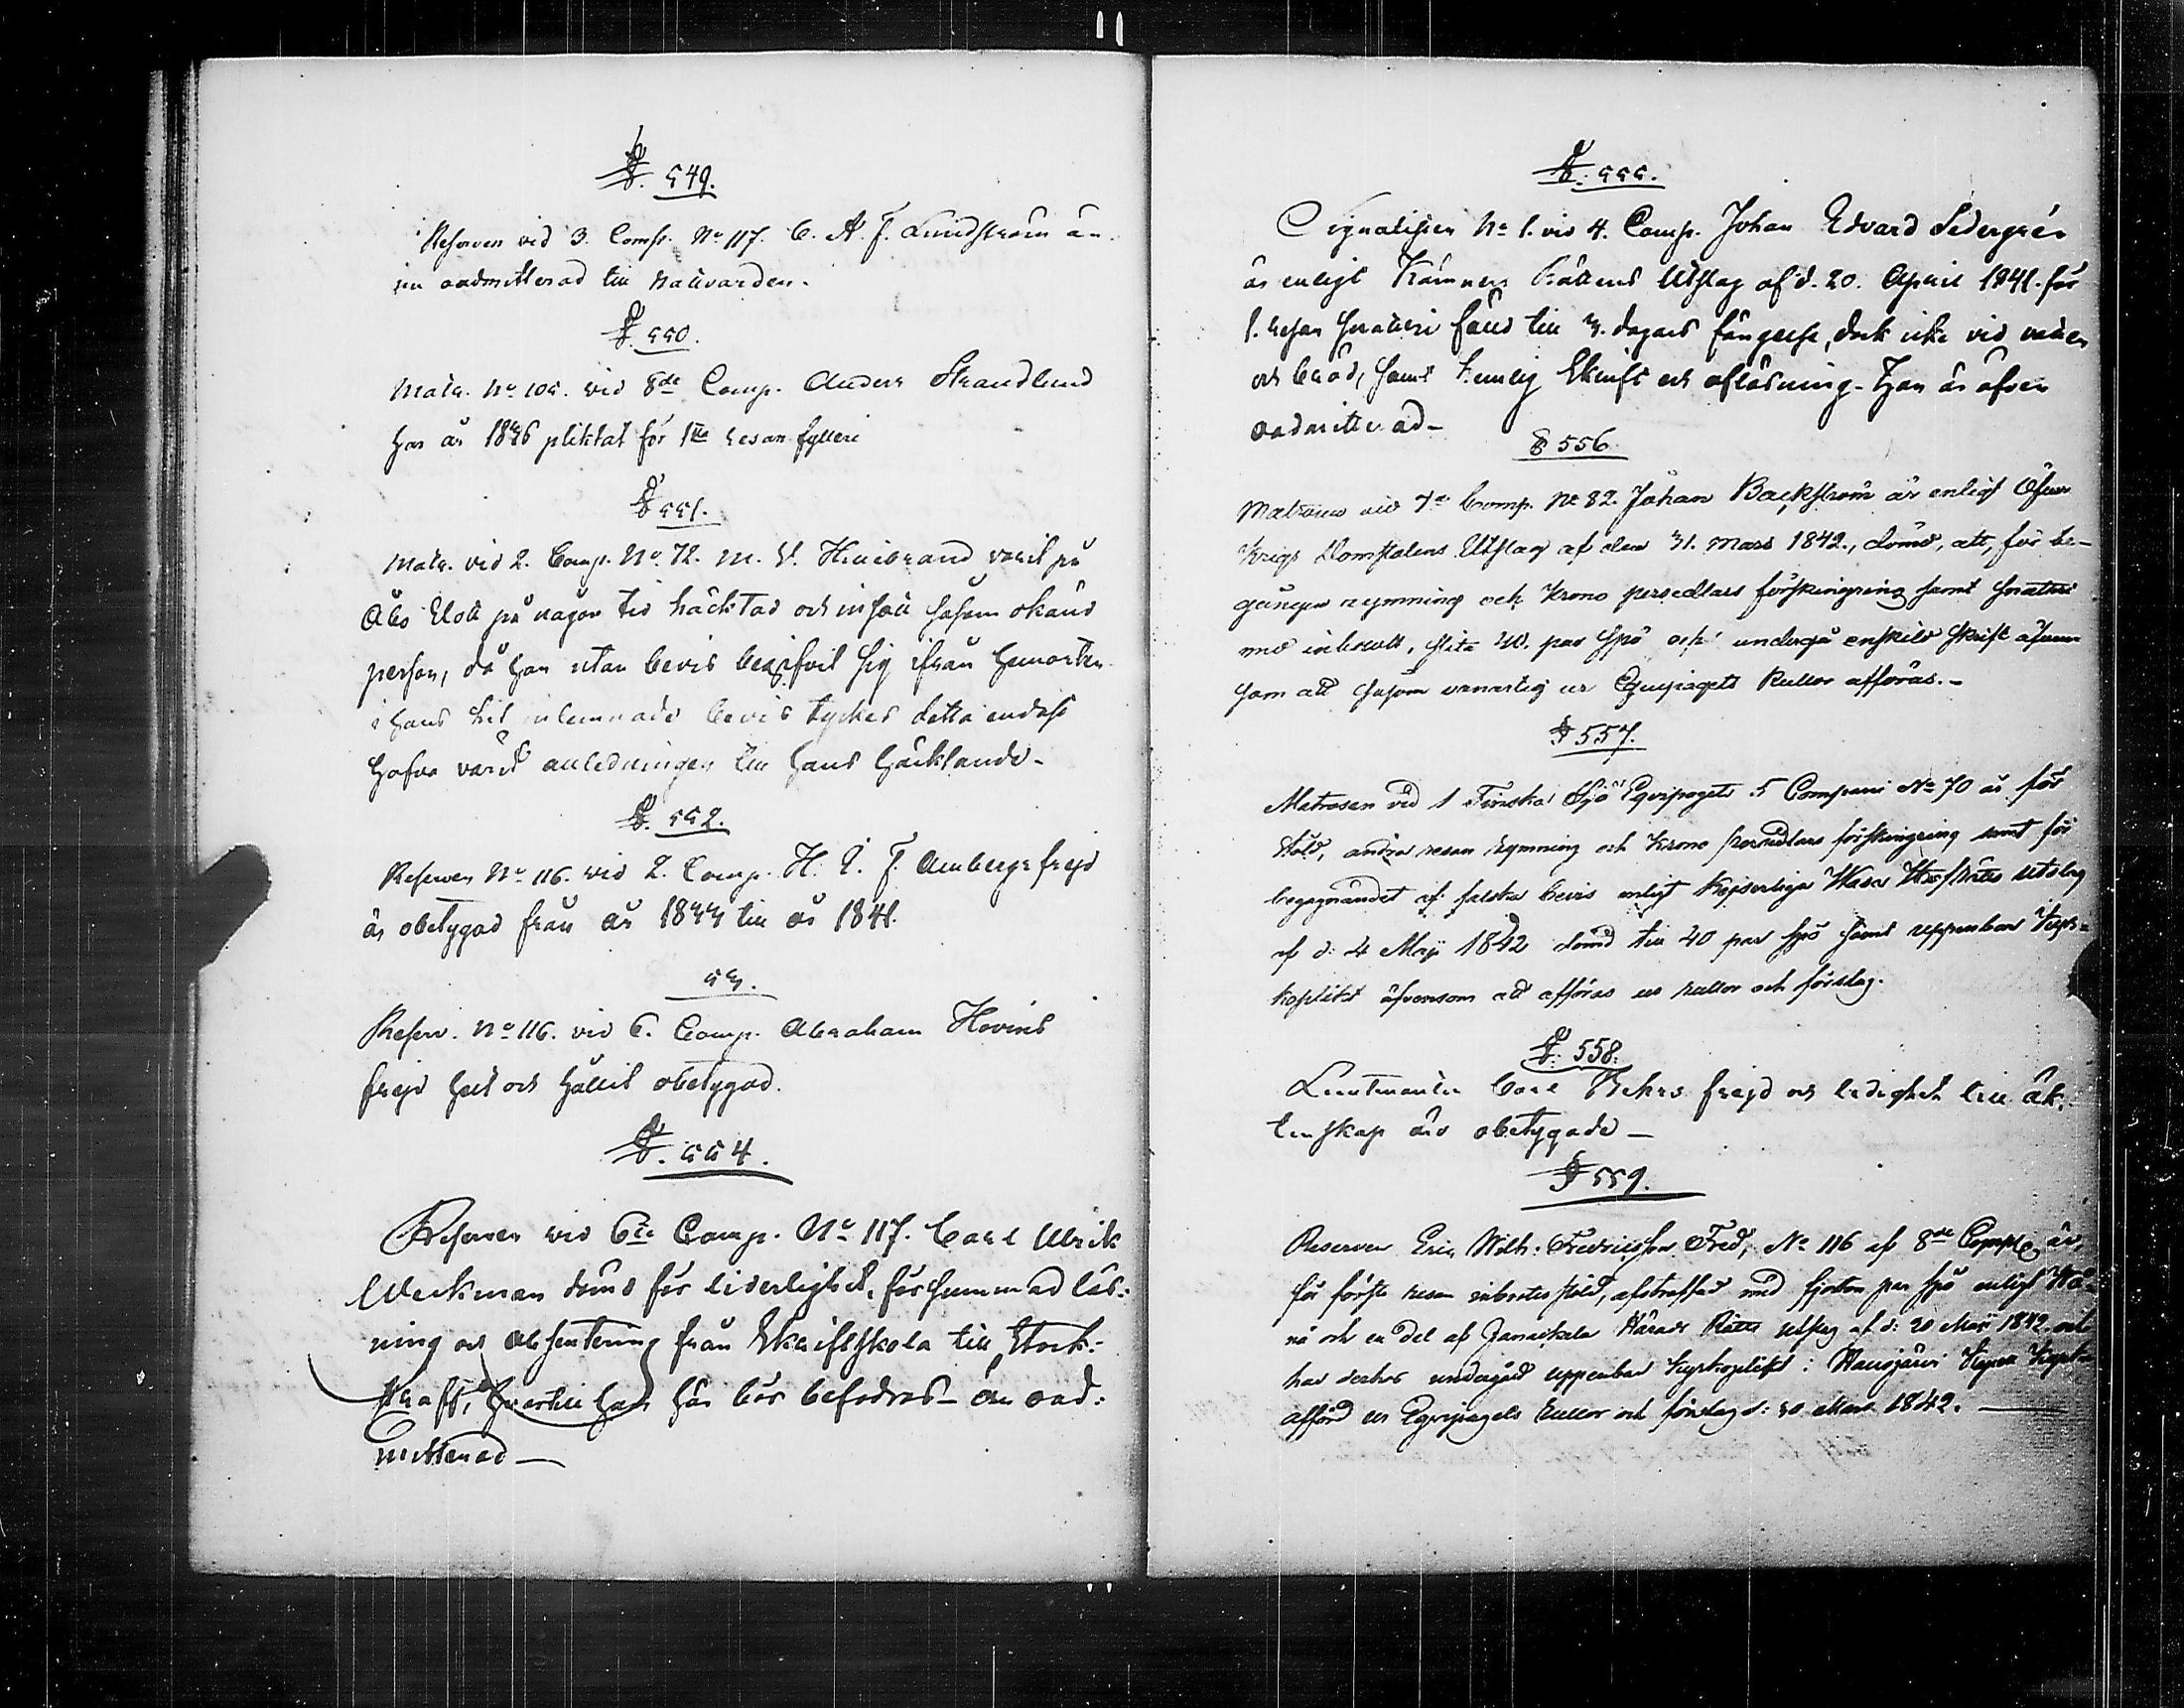 §. 549.
Reserven vid 3. Comp. No 117. C. A. F. Lindström är
nu oadmitterad till nattvarden.
§. 550.
Matr. No 105. vid 8de Comp. Anders Strandlund
har år 1836 pliktat för 1sta resan fylleri
§ 551.
Matr. vid 2. Comp. No 72. M. V. Hinibrand varit på
Åbo Slott på någon tid häcktad och insatt såsom okänd
person, då han utan bevis begifvit sig ifrån hemorten
i hans hit inlemnade bevis tyckes detta endast
hafva varit anledningen till hans häcktande.
§. 552.
Reserven No 116. vid 2. Comp. H. J. F. Ambergs frejd
är obetygad från år 1833 till år 1841.
53.
Reserv. No 116. vid 6. Comp. Abraham Hovins
frejd helt och hållit obetygad.
§. 554.
Reserven vid 6te Comp. No 117. Carl Ulrik
Weckman dömd för liderlighet, försummad läs-
ning och absentering från Skriftskola till Stock-
straff, hvartill han här bör befodras – är oad-
mitterad –
§. 555.
Signalisten No 1. vid 4. Comp. Johan Edvard Sedergrén
är enligt Kämners Rättens Utslag af d. 20. April 1841. för
1. resan snatteri fälld till 3. dagars fängelse, dock icke vid vatten
och bröd, samt hemlig Skrift och aflösning. Han är äfven
oadmitterad –
§ 556
Matrosen vid 7de Comp. No 82. Johan Backström är enligt Öfver
Krigs Domstolens Utslag af den 31. Mars 1842., dömd, att, för be-
gången rymning och krono persedlars förskingring samt snatteri
med inbrott, slita 40. par Spö och undergå enskild skrift äfven
som att såsom vanartig ur Equipagets Rullor afföras. –
§ 557.
Matrosen vid 1 Finska Sjö Equipagets 5 Compani No 70 är för
stöld, andra resan rymning och krono persedlars förskingring samt för
begagnandet af falska bevis enligt Kejserliga Wasa Hofrätts utslag
af d: 4 Maji 1842 dömd till 40 par spö samt uppenbar Kyrk-
koplikt äfvensom att afföras ur rullor och förslag.
§. 558.
Lieutenanten Carl Behrs frejd och ledighet till äk-
tenskap äro obetygade –
§ 559.
Reserven Eric Wilh: Fredricsson Fred, No 116 af 8de Compie är,
för första resan inbrotts stöld, afstraffad med fjorton par spö enligt
och en del af Janackala Härads Rätts utslag af d: 20 Maji 1842. och
har derhos undergått uppenbar kyrkoplikt i Hausjärvi
afförd ur Equipagets Rullor och förslag d: 30 Mars 1842. –